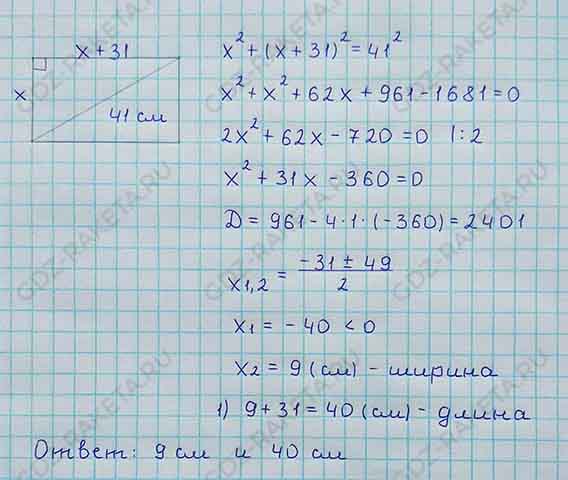 x + 31
x
41 см
x² + (x + 31)² = 41²
x² + x² + 62x + 961 - 1681 = 0
2x² + 62x - 720 = 0 |: 2
x² + 31x - 360 = 0
D = 961 - 4 · 1 · (-360) = 2401
x1,2 = (-31 ± 49) / 2
x1 = - 40 < 0
x2 = 9 (см) - ширина
1) 9 + 31 = 40 (см) - длина
Ответ: 9 см и 40 см
GDZ-RAKETA.RU